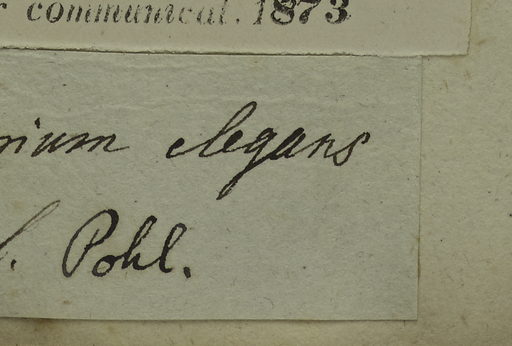 communical. 1873
rium elegans
l. Pohl.